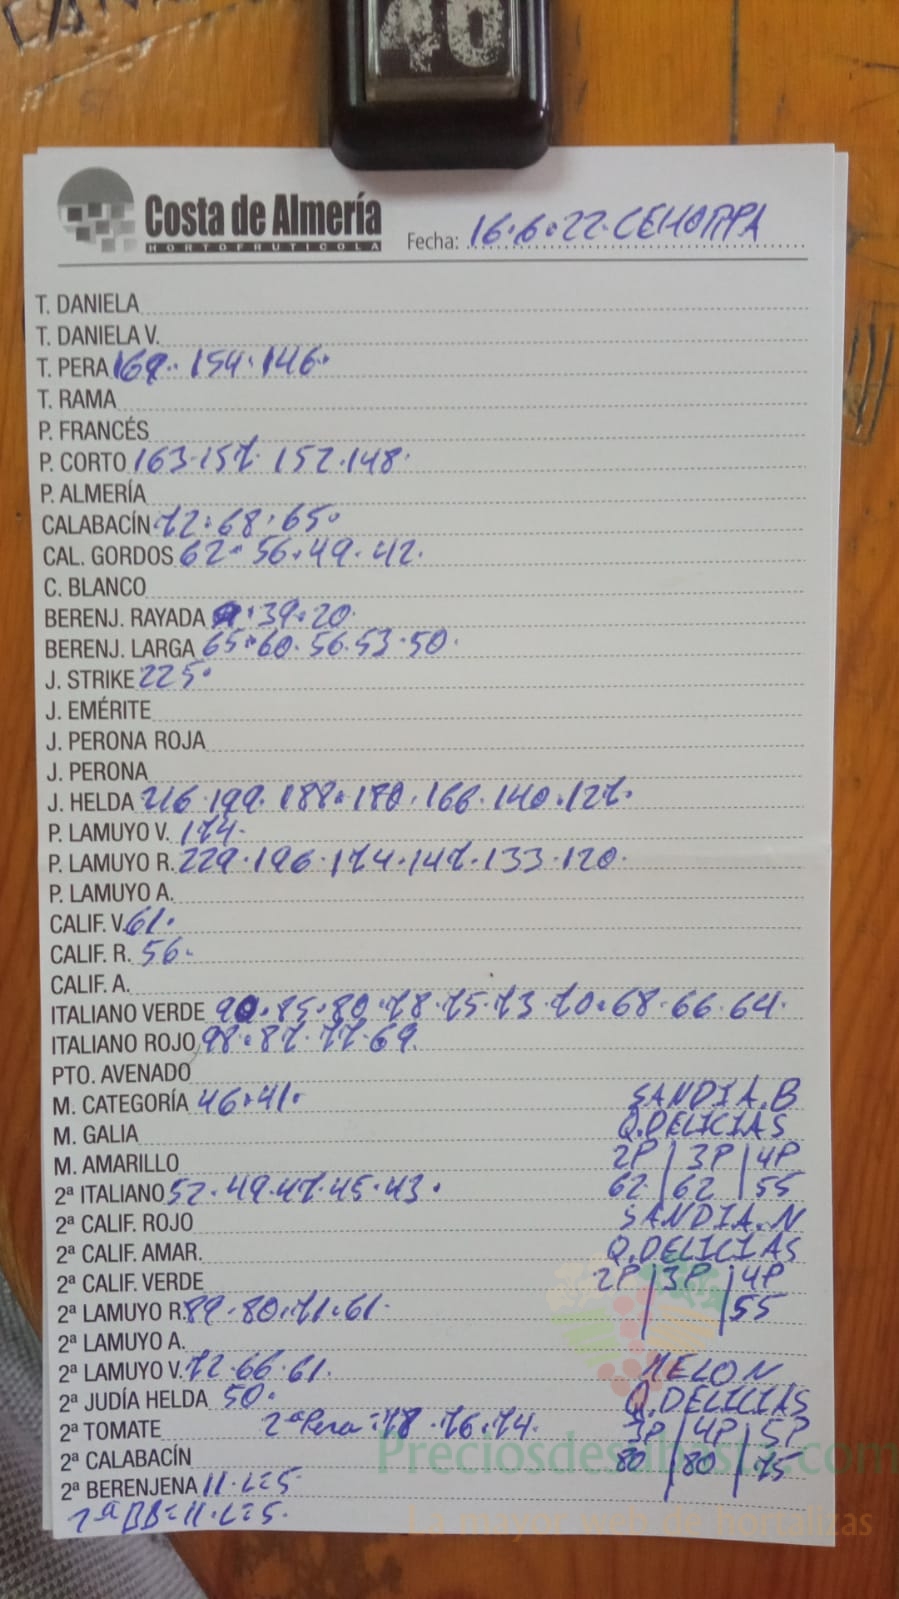 40
Costa de Almería
HORTOFRUTICOLA
Fecha: 16.6.22.CEHORPA
T. DANIELA
T. DANIELA V.
T. PERA 169. 154. 146.
T. RAMA
P. FRANCÉS
P. CORTO 163.157. 152.148.
P. ALMERÍA
CALABACÍN 72.68.65.
CAL. GORDOS 62. 56.49.42.
C. BLANCO
BERENJ. RAYADA .39.20.
BERENJ. LARGA 65.60.56.53.50.
J. STRIKE 225.
J. EMÉRITE
J. PERONA ROJA
J. PERONA
J. HELDA 216.199.188.180.166.140.127.
P. LAMUYO V. 174.
P. LAMUYO R. 229.196.174.147.133.120.
P. LAMUYO A.
CALIF. V. 61.
CALIF. R. 56.
CALIF. A.
ITALIANO VERDE 90.85.80.78.75.73.70.68.66.64.
ITALIANO ROJO 98.87.77.69.
PTO. AVENADO
M. CATEGORÍA 46.41. SANDIA.B
M. GALIA Q.DELICIAS
M. AMARILLO 2P | 3P | 4P
2ª ITALIANO 52.49.47.45.43. 62 | 62 | 55
2ª CALIF. ROJO SANDIA.N
2ª CALIF. AMAR. Q.DELICIAS
2ª CALIF. VERDE 2P | 3P | 4P
2ª LAMUYO R. 89.80.71.61. 55
2ª LAMUYO A.
2ª LAMUYO V. 72.66.61. MELON
2ª JUDÍA HELDA 50. Q.DELICIAS
2ª TOMATE 2ªPera=78.76.74. 3P | 4P | 5P
2ª CALABACÍN 80 | 80 | 75
2ª BERENJENA 11.L=5
2ªBB=11.L=5.
Preciosdesubasta.com
La mayor web de hortalizas